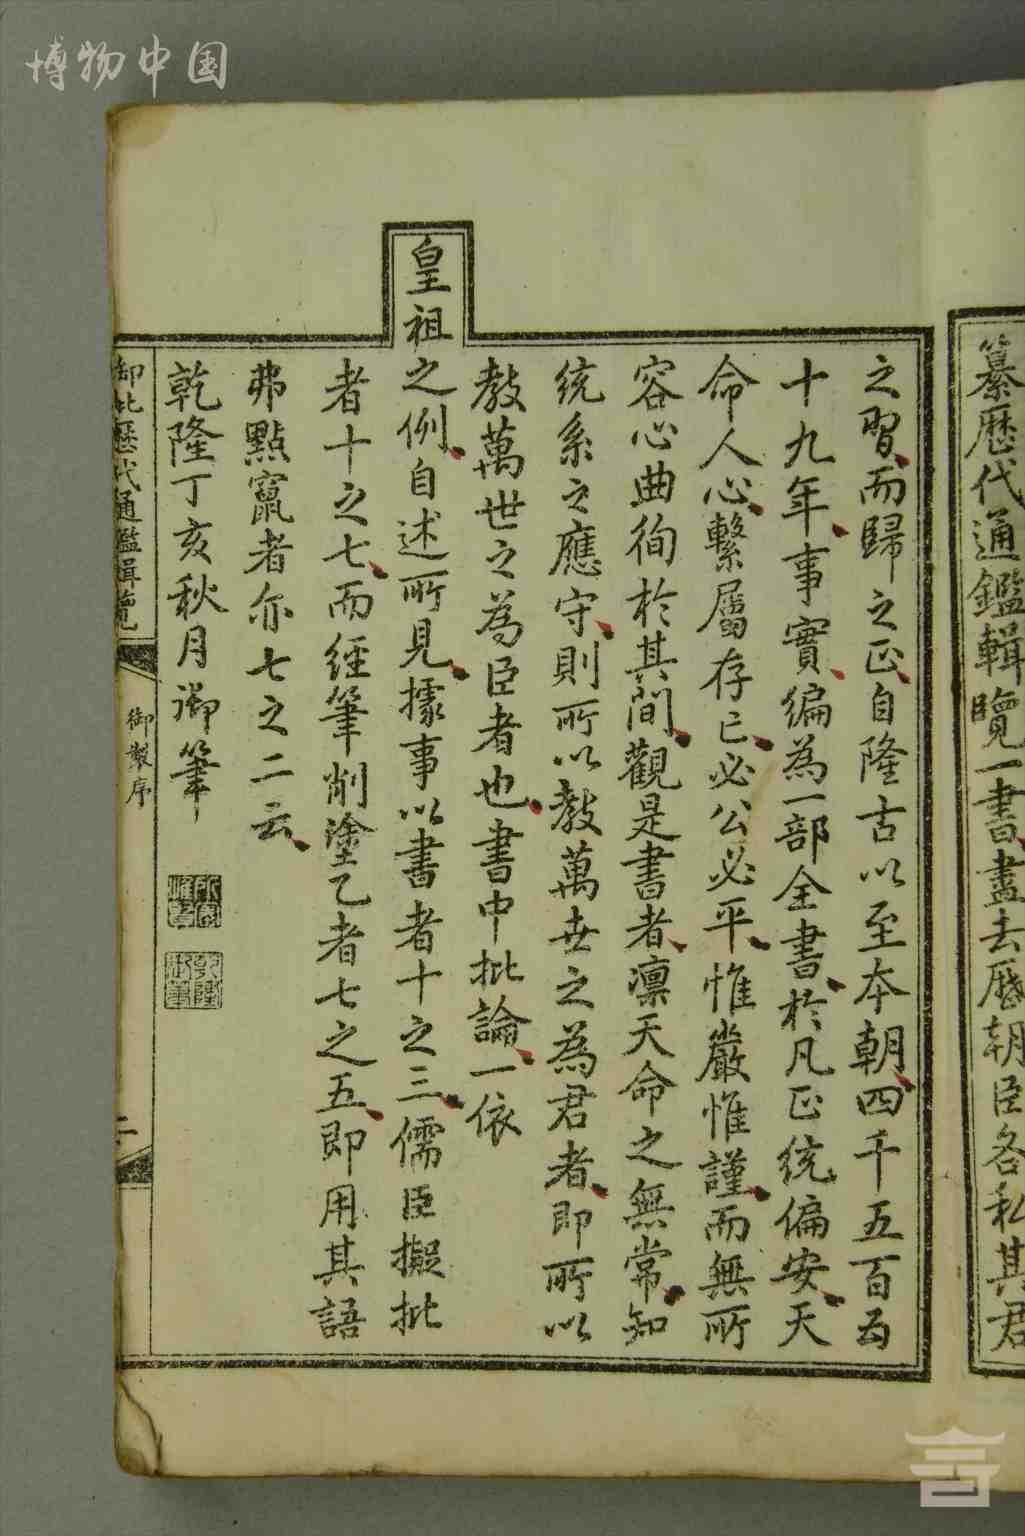 博物中国
纂歷代通鑑輯覽一書盡去歷朝臣各私其君
之習而歸之正自隆古以至本朝四千五百五
十九年事實編為一部全書於凡正統偏安天
命人心繫屬存亡必公必平惟嚴惟謹而無所
容心曲徇於其間觀是書者凜天命之無常知
統系之應守則所以教萬世之為君者即所以
教萬世之為臣者也書中批論一依
皇祖之例自述所見據事以書者十之三儒臣擬批
者十之七而經筆削塗乙者七之五即用其語
弗點竄者亦七之二云
乾隆丁亥秋月御筆
所寶惟賢
乾隆御筆
御批歷代通鑑輯覽
御製序
二